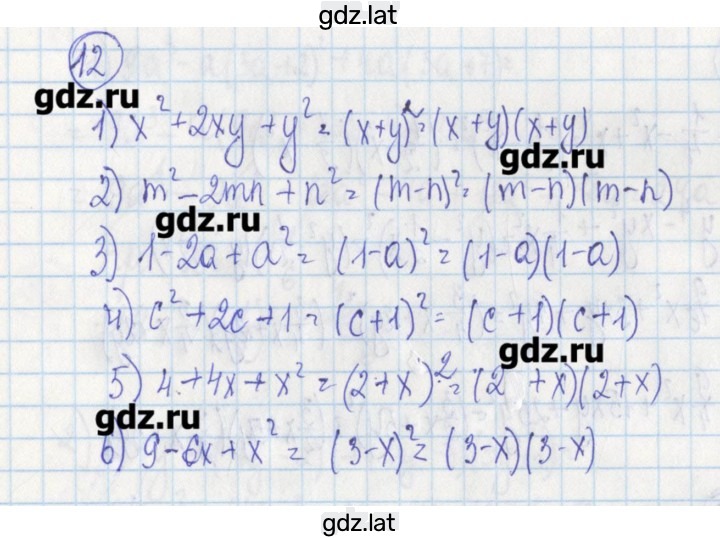 gdz.lat
12
gdz.ru
1) x² + 2xy + y² = (x+y)² = (x+y)(x+y)
gdz.ru
2) m² - 2mn + n² = (m-n)² = (m-n)(m-n)
gdz.ru
3) 1 - 2a + a² = (1-a)² = (1-a)(1-a)
4) c² + 2c + 1 = (c+1)² = (c+1)(c+1)
gdz.ru
5) 4 + 4x + x² = (2+x)² = (2+x)(2+x)
gdz.ru
6) 9 - 6x + x² = (3-x)² = (3-x)(3-x)
gdz.lat